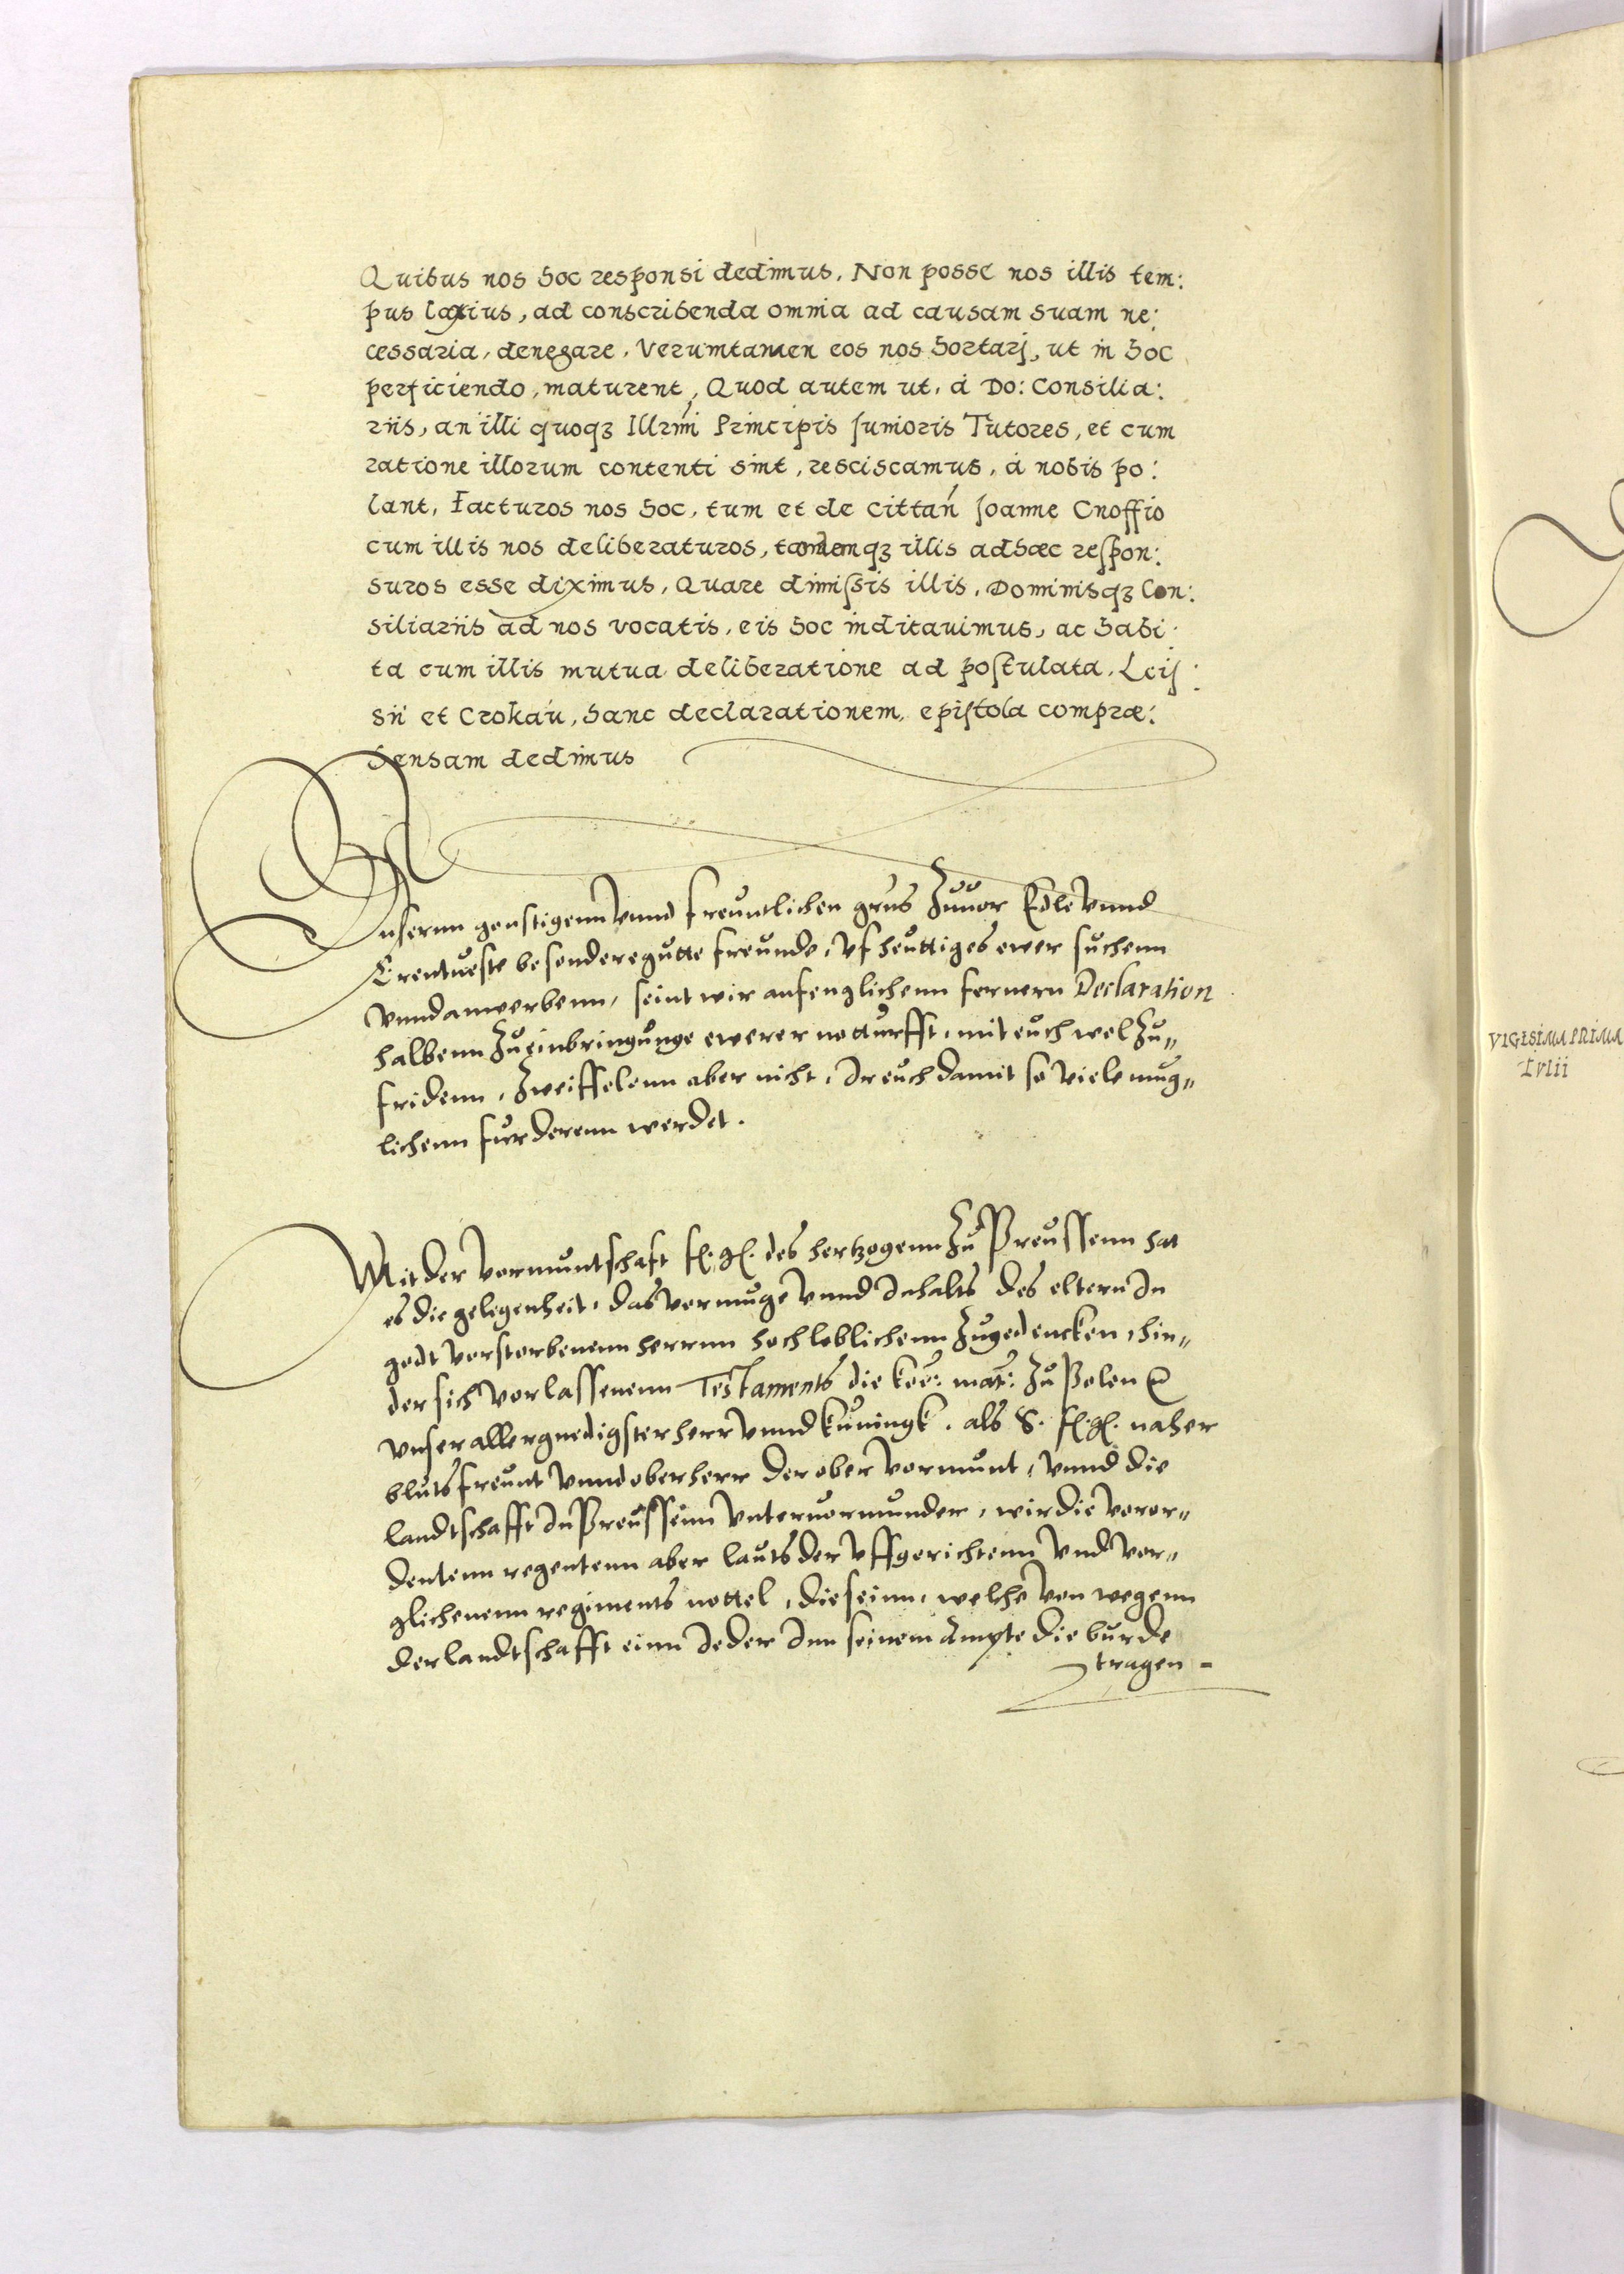 Quibus nos hoc responsi dedimus. Non posse nos illis tem:
pus laxius, ad conscribenda omnia ad causam suam ne:
cessaria, denegare. Verumtamen eos nos hortarj, ut in hoc
perficiendo, maturent, Quod autem ut, à Do: Consilia:
riis, an illi quoqꝫ Illrmi Principis Junioris Tutores, et cum
ratione illorum contenti sint, resciscamus, à nobis po:
lant, Facturos nos hoc, tum et de Cittań Joanne Cnoffio
cum illis nos deliberaturos, tandemqꝫ illis adhæc respon:
suros esse diximus, Quare dimissis illis, Dominisqꝫ Con:
siliariis ad nos vocatis, eis hoc inditauimus, ac habi:
ta cum illis mutua deliberatione ad postulata, Leis:
sii et Crokaú, hanc declarationem, epistola compræ:
hensam dedimus
Unsernn genstigenn vnnd freuntlichen grus zuuor Edle vnnd
Erentueste besondere gutte freunde, vf heuttiges ewer suchenn
vnnd anwerbenn, seint wir anfenglichenn fernern Declaration
halbenn zu einbringunge ewerer notturfft, mit euch wol zu„
fridenn, zweiffelenn aber nicht, Ir euch damit so viele mug„
lichenn furderenn werdet.
Mit der vormuntschaft f. g. des hertzogenn zu Preussenn hat
es die gelegenheit, das vormuge vnnd Inhalts des eltern In
godt vorstorbenenn herrnn hochloblichenn zugedencken, hin„
der sich vorlassenenn Testaments die koe: mat: zu Polen
vnser allergnedigster herr vnnd kuningk. als S. f. g. naher
blutsfreunt vnnd oberherr der ober vormunt, vnnd die
landtschafft In Preussenn vnteruormunder, wir die voror„
dentenn regentenn aber lauts der vffgerichtenn vnd vor„
glichenenn regiments nottel, die seinn, welche von wegenn
der landtschafft einn Jeder Inn seinem Ampte die burde
tragen -
VIGESIMA PRIMA
Lvlii